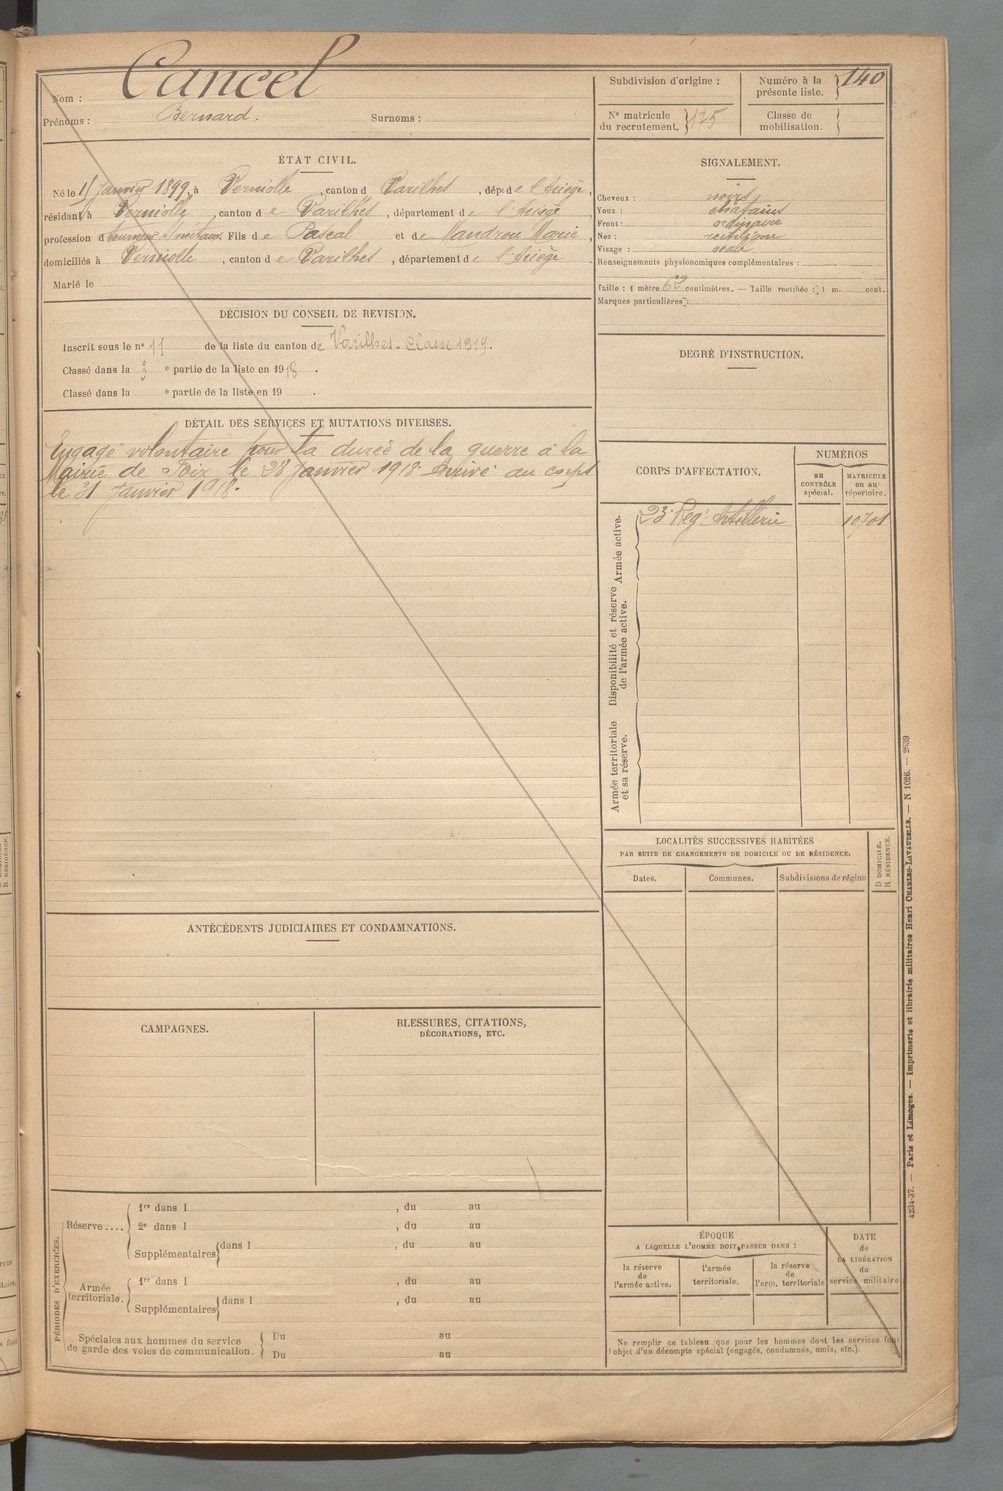 Nom : Cancel
Prénoms : Bernard. Surnoms :
Subdivision d'origine :
Numéro à la présente liste. 140
Nº matricule du recrutement. 125
Classe de mobilisation.
ÉTAT CIVIL.
Né le 15 Janvier 1899, à Verniolle, canton d Varilhes, dép de l'Ariège,
résidant à Verniolle, canton de Varilhes, département de l'Ariège
profession d tourneur s/ métaux. Fils de Pascal et de Vandrou Marie,
domiciliés à Verniolle, canton de Varilhes, département de l'Ariège
Marié le
SIGNALEMENT.
Cheveux : noirs
Yeux : châtains
Front : ordinaire
Nez : rectiligne
Visage : ovale
Renseignements physionomiques complémentaires :
Taille : 1 mètre 62 centimètres. — Taille rectifiée : 1 m. cent.
Marques particulières :
DÉCISION DU CONSEIL DE REVISION.
Inscrit sous le nº 11 de la liste du canton de Varilhes - Classe 1919.
Classé dans la e partie de la liste en 1918.
Classé dans la e partie de la liste en 19 .
DEGRÉ D'INSTRUCTION.
DÉTAIL DES SERVICES ET MUTATIONS DIVERSES.
Engagé volontaire pour la durée de la guerre à la
Mairie de Foix le 28 Janvier 1918. Arrivé au corps
le 31 Janvier 1918.
CORPS D'AFFECTATION.
NUMÉROS
AU CONTRÔLE spécial.
MATRICULE ou au répertoire.
Armée active.
23e Regt Artillerie 10701
Disponibilité et réserve de l'armée active.
Armée territoriale et sa réserve.
LOCALITÉS SUCCESSIVES HABITÉES
PAR SUITE DE CHANGEMENTS DE DOMICILE OU DE RÉSIDENCE.
D DOMICILE.
R RÉSIDENCE.
Dates. Communes. Subdivisions de région
ANTÉCÉDENTS JUDICIAIRES ET CONDAMNATIONS.
CAMPAGNES.
BLESSURES, CITATIONS,
DÉCORATIONS, ETC.
PÉRIODES D'EXERCICES.
Réserve....
1re dans l , du au
2e dans l , du au
Supplémentaires dans l , du au
Armée territoriale.
1re dans l , du au
Supplémentaires dans l , du au
Spéciales aux hommes du service
de garde des voies de communication.
Du au
Du au
ÉPOQUE
A LAQUELLE L'HOMME DOIT PASSER DANS :
la réserve de l'armée active.
l'armée territoriale.
la réserve de l'arm. territoriale
DATE de LA LIBÉRATION du service militaire
Ne remplir ce tableau que pour les hommes dont les services font
l'objet d'un décompte spécial (engagés, condamnés, omis, etc.).
4234-37. — Paris et Limoges. — Imprimerie et librairie militaires Henri CHARLES-LAVAUZELLE. — N 1026. — 2639